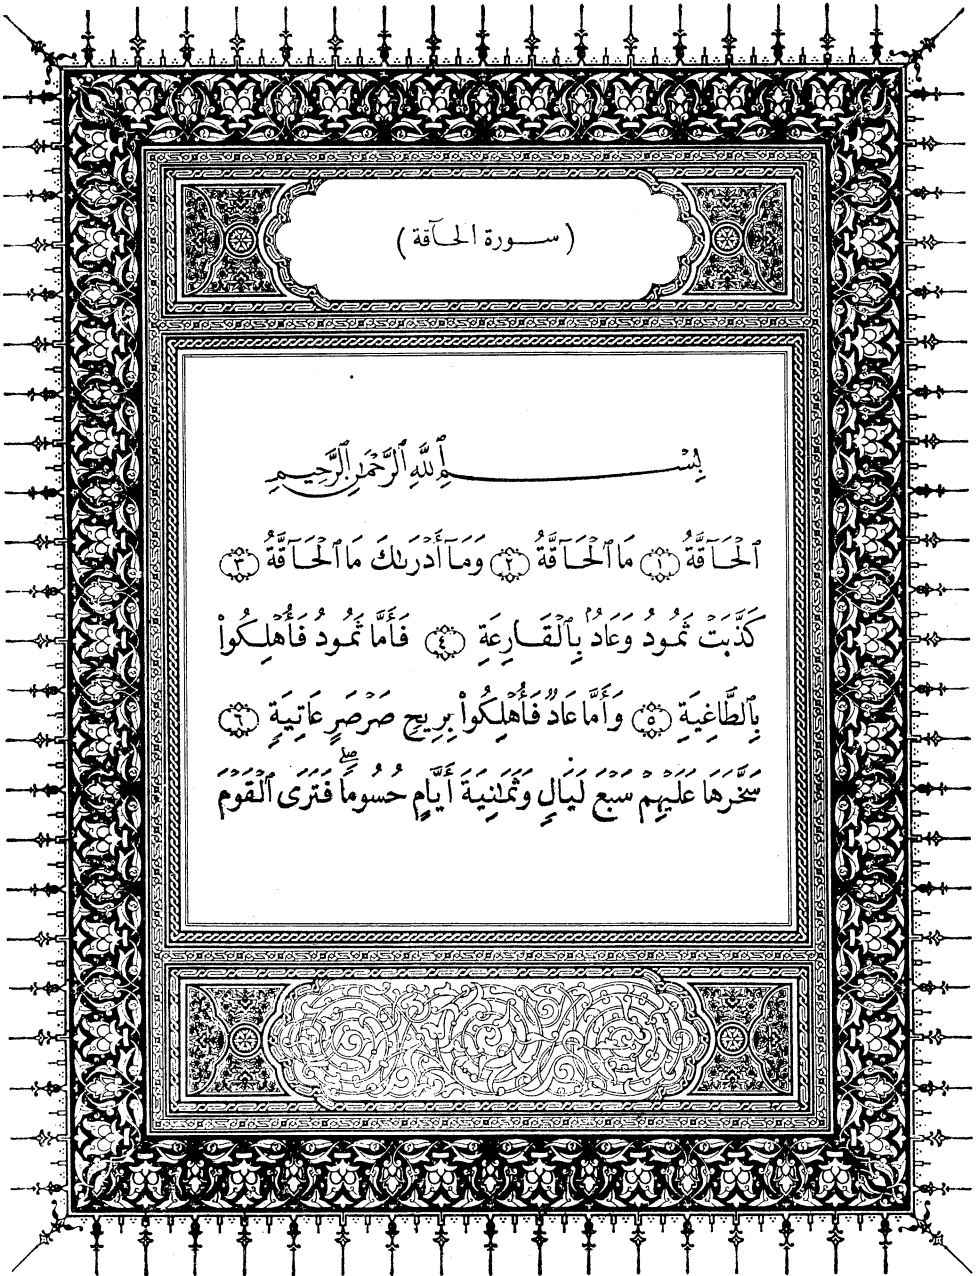 ( سـورة الحـآقة )
بِسْـــمِ ٱللَّهِ ٱلرَّحْمَٰنِ ٱلرَّحِيمِ
ٱلْحَآقَّةُ ﴿١﴾ مَا ٱلْحَآقَّةُ ﴿٢﴾ وَمَآ أَدْرَىٰكَ مَا ٱلْحَآقَّةُ ﴿٣﴾
كَذَّبَتْ ثَمُودُ وَعَادٌۢ بِٱلْقَارِعَةِ ﴿٤﴾ فَأَمَّا ثَمُودُ فَأُهْلِكُوا۟
بِٱلطَّاغِيَةِ ﴿٥﴾ وَأَمَّا عَادٌ فَأُهْلِكُوا۟ بِرِيحٍ صَرْصَرٍ عَاتِيَةٍ ﴿٦﴾
سَخَّرَهَا عَلَيْهِمْ سَبْعَ لَيَالٍ وَثَمَٰنِيَةَ أَيَّامٍ حُسُومًا ۖ فَتَرَى ٱلْقَوْمَ